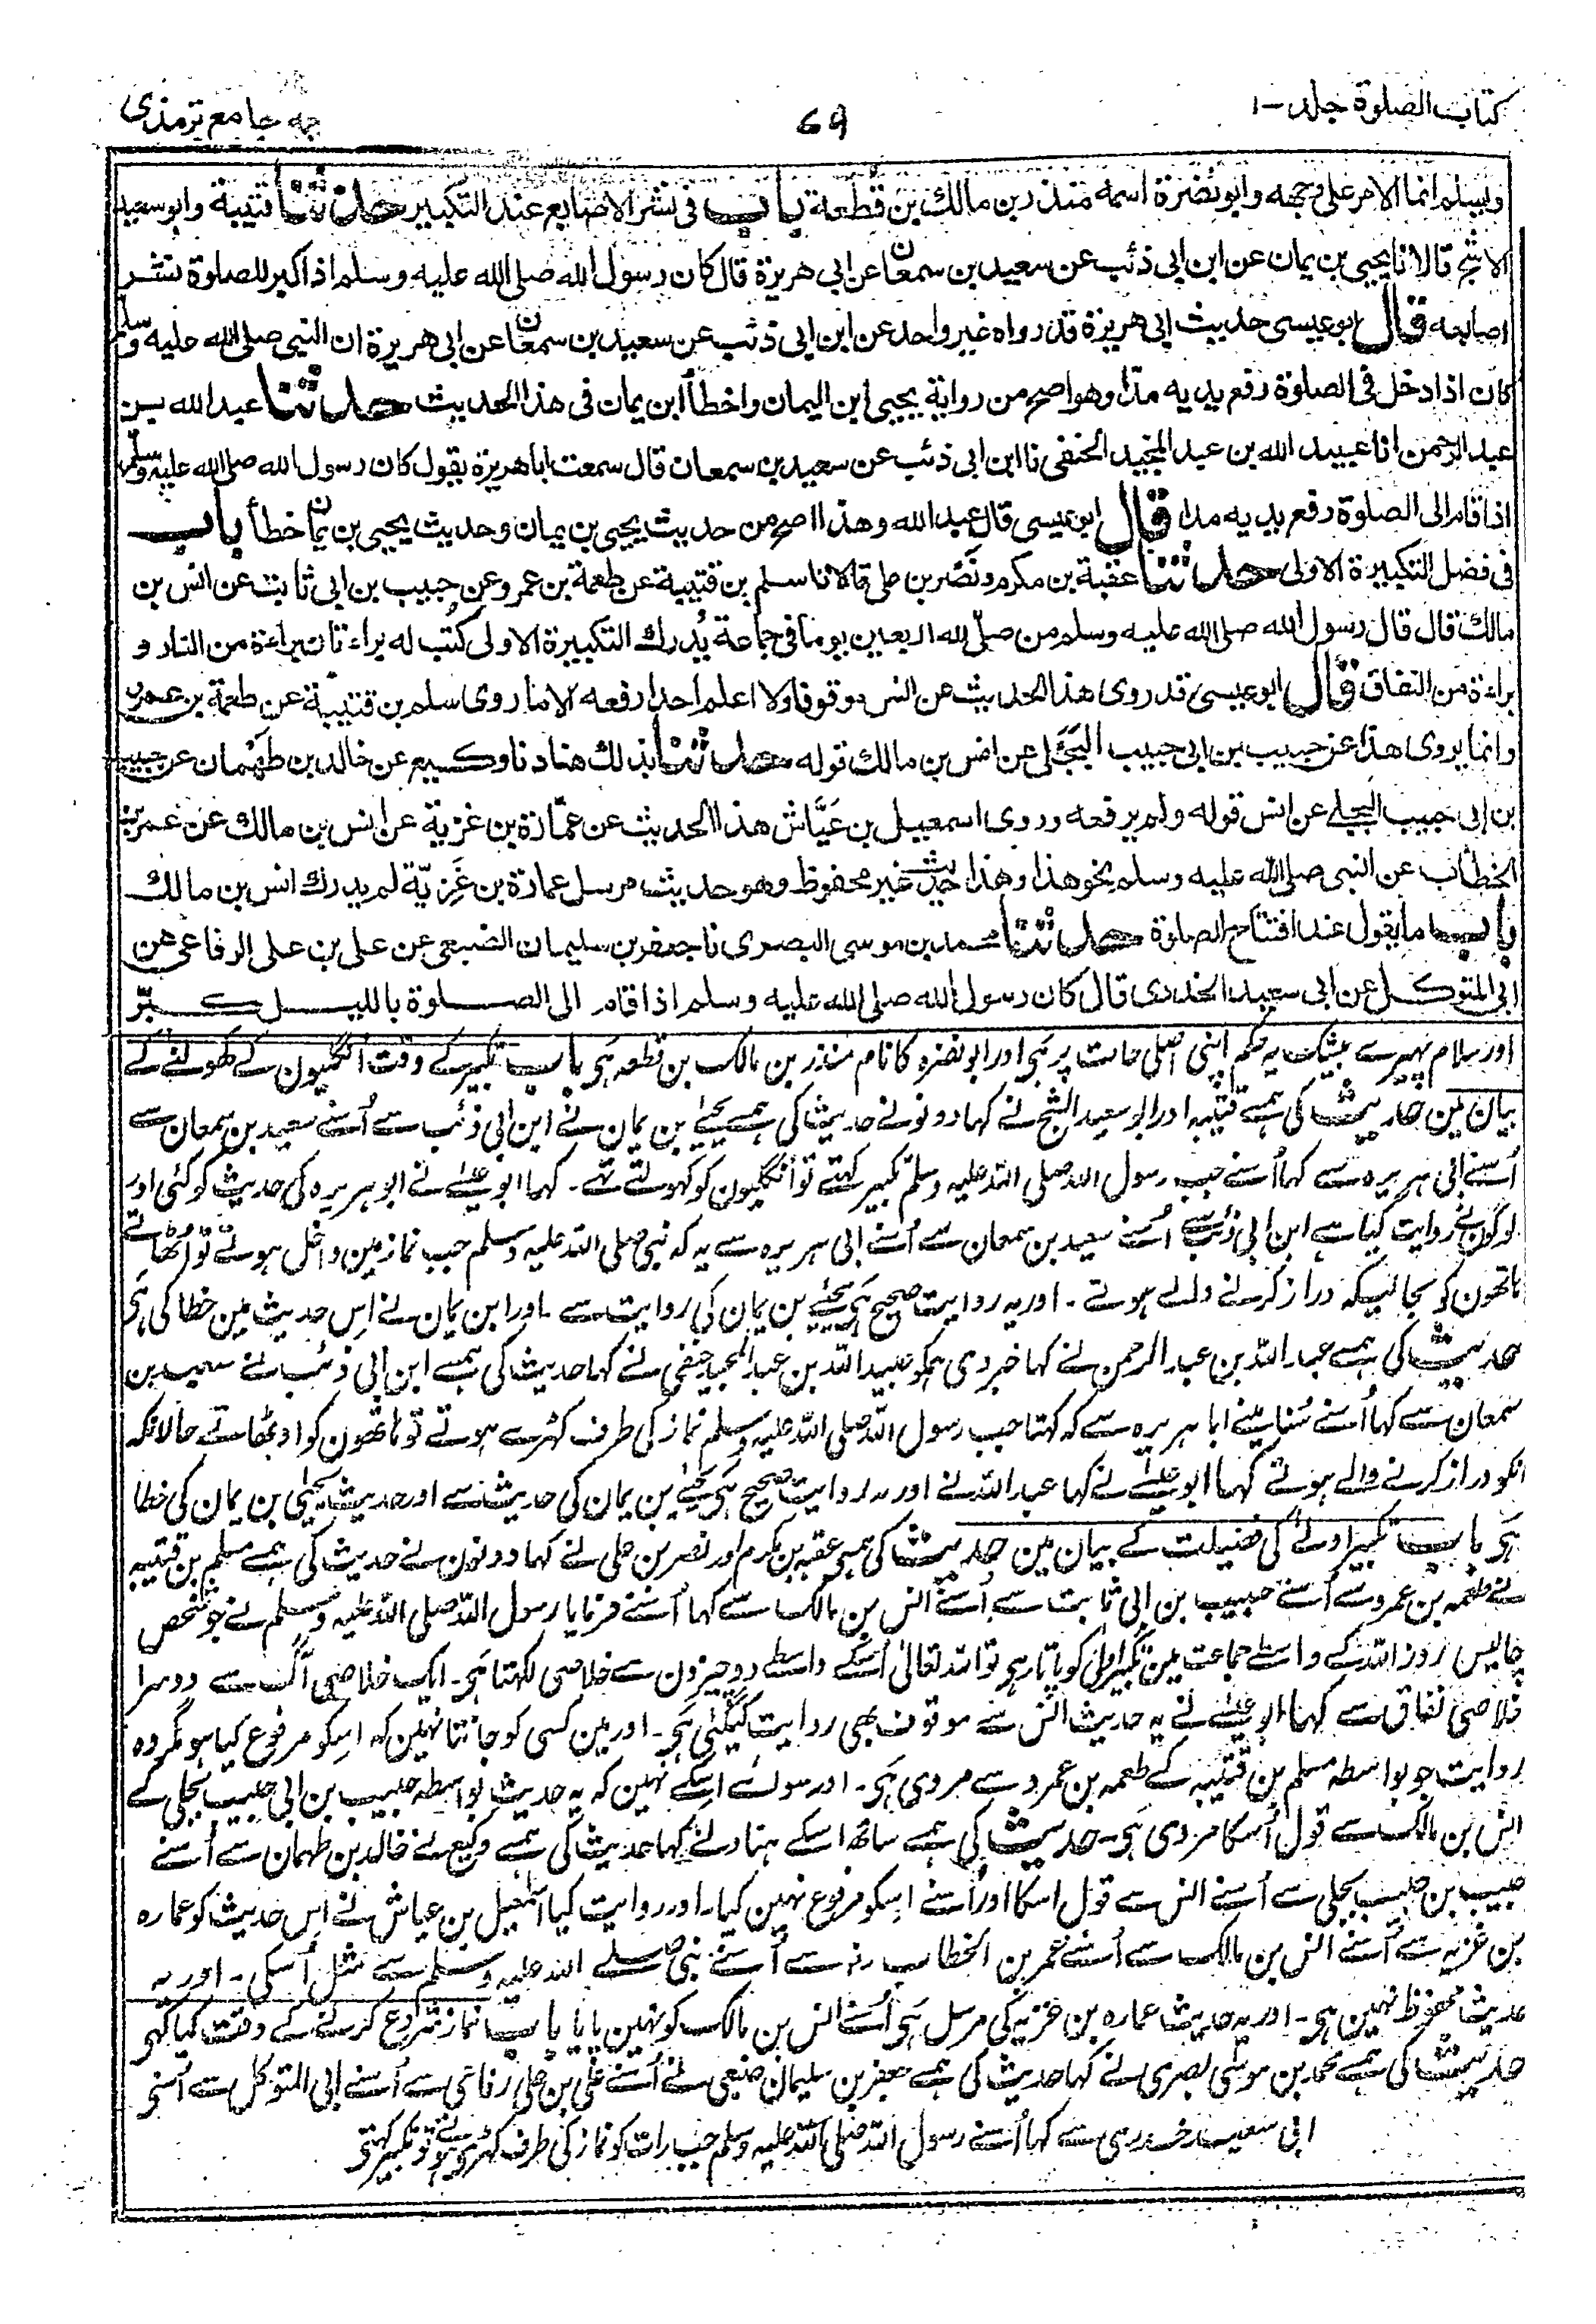 کتاب الصلوة جلد-۱
69
جمه جامع ترمذی
ویسلم انما الامر علی وجهه وابو نضرة اسمه منذر بن مالك بن قطعة باب فی نشر الاصابع عند التکبیر حدثنا قتیبة وابو سعید
الاشج قالا نا یحیی بن یمان عن ابن ابی ذئب عن سعید بن سمعان عن ابی هریرة قال کان رسول الله صلی الله علیه وسلم اذا کبر للصلوة نشر
اصابعه قال ابو عیسی حدیث ابی هریرة قد رواه غیر واحد عن ابن ابی ذئب عن سعید بن سمعان عن ابی هریرة ان النبی صلی الله علیه وسلم
کان اذا دخل فی الصلوة رفع یدیه مدّا وهو اصح من روایة یحیی ابن الیمان واخطأ ابن یمان فی هذا الحدیث حدثنا عبد الله بن
عبد الرحمن انا عبید الله بن عبد المجید الحنفی نا ابن ابی ذئب عن سعید بن سمعان قال سمعت ابا هریرة یقول کان رسول الله صلی الله علیه وسلم
اذا قام الی الصلوة رفع یدیه مدا قال ابو عیسی قال عبد الله وهذا اصح من حدیث یحیی بن یمان وحدیث یحیی بن یمان خطأ باب
فی فضل التکبیرة الاولی حدثنا عقبة بن مکرم ونصر بن علی قالا نا سلم بن قتیبة عن طعمة بن عمرو عن حبیب بن ابی ثابت عن انس بن
مالك قال قال رسول الله صلی الله علیه وسلم من صلّی لله اربعین یوما فی جماعة یُدرك التکبیرة الاولی کُتب له براءتان براءة من النار و
براءة من النفاق قال ابو عیسی قد روی هذا الحدیث عن انس موقوفا ولا اعلم احدا رفعه الا ما روی سلم بن قتیبة عن طعمة بن عمرو
وانما یروی هذا عن حبیب بن ابی حبیب البَجَلی عن انس بن مالك قوله حدثنا بذلك هناد نا وکیع عن خالد بن طَهْمان عن حبیب
بن ابی حبیب البجلے عن انس قوله ولم یرفعه وروی اسمعیل بن عَیَّاش هذا الحدیث عن عمّارة بن غزیة عن انس بن مالك عن عمر بن
الخطاب عن النبی صلی الله علیه وسلم نحو هذا وهذا حدیث غیر محفوظ وهو حدیث مرسل عمارة بن غَزِیّة لم یدرك انس بن مالك
باب ما یقول عند افتتاح الصلوة حدثنا محمد بن موسی البصری نا جعفر بن سلیمان الضبعی عن علی بن علی الرفاعی عن
ابی المتوکل عن ابی سعید الخدری قال کان رسول الله صلی الله علیه وسلم اذا قام الی الصلوة باللیل کبّر
اور سلام پھیرے بیشک یہ حکم اپنی اصلی حالت پر ہی اور ابو نضرہ کا نام منذر بن مالک بن قطعہ ہی باب تکبیر کے وقت اُنگلیون کے کھولنے کے
بیان مین حدیث کی ہمسے قتیبہ اور ابو سعید الشج نے کہا دونونے حدیث کی ہمسے یحییٰ بن یمان نے ابن ابی ذئب سے اُسنے سعید بن سمعان سے
اُسنے ابی ہریرہ سے کہا اُسنے جب رسول اللہ صلی اللہ علیہ وسلم تکبیر کہتے تو اُنگلیون کو کھولتے تھے۔ کہا ابو عیسٰے نے ابو ہریرہ کی حدیث کو کئی اور
لوگون نے روایت کیا ہے ابن ابی ذئب سے اُسنے سعید بن سمعان سے اُسنے ابی ہریرہ سے یہ کہ نبی صلی اللہ علیہ وسلم جب نماز مین داخل ہوتے تو اُٹھاتے
ہاتھون کو بحالیکہ دراز کرنے والے ہوتے۔ اور یہ روایت صحیح ہی یحیٰے بن یمان کی روایت سے۔ اور ابن یمان نے اِس حدیث مین خطا کی ہی
حدیث کی ہمسے عبد اللہ بن عبد الرحمن نے کہا خبر دی ہمکو عبید اللہ بن عبد المجید حنفی نے کہا حدیث کی ہمسے ابن ابی ذئب نے سعید بن
سمعان سے کہا اُسنے سُنا مینے ابا ہریرہ سے کہ کہتا جب رسول اللہ صلی اللہ علیہ وسلم نماز کی طرف کھڑے ہوتے تو ہاتھون کو اوٹھاتے حالانکہ
انکو دراز کرنے والے ہوتے کہا ابو عیسٰے نے کہا عبد اللہ نے اور یہ روایت صحیح ہی یحیٰے بن یمان کی حدیث سے اور حدیث یحیٰی بن یمان کی خطا
ہی باب تکبیر اولے کی فضیلت کے بیان مین حدیث کی ہمسے عقبہ بن مکرم اور نصر بن علی نے کہا دونون نے حدیث کی ہمسے مسلم بن قتیبہ
نے طعمہ بن عمرو سے اُسنے حبیب بن ابی ثابت سے اُسنے انس بن مالک سے کہا اُسنے فرمایا رسول اللہ صلی اللہ علیہ وسلم نے جو شخص
چالیس روز اللہ کے واسطے جماعت مین تکبیر اولٰی کو پاتا رہی تو اللہ تعالیٰ اُسکے واسطے دو چیزون سے خلاصی لکھتا ہی۔ ایک خلاصی آگ سے دوسرا
خلاصی نفاق سے کہا ابو عیسٰے نے یہ حدیث انس سے موقوف بھی روایت کیگئی ہی۔ اور مین کسی کو جانتا نہین کہ اِسکو مرفوع کیا ہو مگر وہ
روایت جو بواسطہ مسلم بن قتیبہ کے طعمہ بن عمرو سے مروی ہی۔ اور سوائے اسکے نہین کہ یہ حدیث بواسطہ حبیب بن ابی حبیب بجلی کے
انس بن مالک سے قول اُسکا مروی ہی۔ حدیث کی ہمسے ساتھ اسکے ہناد نے کہا حدیث کی ہمسے وکیع نے خالد بن طہمان سے اُسنے
حبیب بن حبیب بجلی سے اُسنے انس سے قول اسکا اور اُسنے اِسکو مرفوع نہین کیا۔ اور روایت کیا اسمٰعیل بن عیاش نے اِس حدیث کو عمارہ
بن غزیہ سے اُسنے انس بن مالک سے اُسنے عمر بن الخطاب رضہ سے اُسنے نبی صلے اللہ علیہ وسلم سے مثل اُسکی۔ اور یہ
حدیث محفوظ نہین ہی۔ اور یہ حدیث عمارہ بن غزیہ کی مرسل ہی اُسنے انس بن مالک کو نہین پایا باب نماز شروع کرنے کے وقت کیا کہی
حدیث کی ہمسے محمد بن موسٰی بصری نے کہا حدیث کی ہمسے جعفر بن سلیمان ضبعی نے اُسنے علی بن علی رفاعی سے اُسنے ابی المتوکل سے اُسنی
ابی سعید خدری سے کہا اُسنے رسول اللہ صلی اللہ علیہ وسلم جب رات کو نماز کی طرف کھڑی ہوتے تو تکبیر کہتی